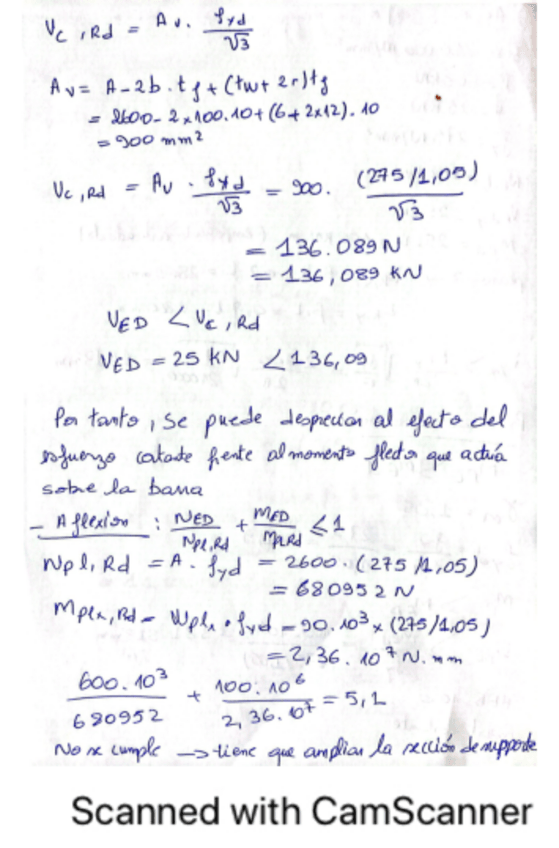 Vc,Rd = Av. fyd/√3
Av = A-2b.tf+(tw+2r)tf
= 2600-2x100.10+(6+2x12).10
= 900 mm²
Vc,Rd = Av . fyd/√3 = 900. (275/1,05)/√3
= 136.089 N
= 136,089 KN
VED < Vc,Rd
VED = 25 KN < 136,09
Por tanto, se puede despreciar al efecto del
esfuerzo cortante frente al momento flector que actúa
sobre la barra
- A flexion : NED/Npl,Rd + MED/MpRd ≤ 1
Npl,Rd = A. fyd = 2600.(275/1,05)
= 680952 N
Mplx,Rd = Wplx.fyd = 90.10³x(275/1,05)
= 2,36.10⁷ N.mm
600.10³/680952 + 100.10⁶/2,36.10⁷ = 5,1
No se cumple → tiene que ampliar la sección de supporte
Scanned with CamScanner